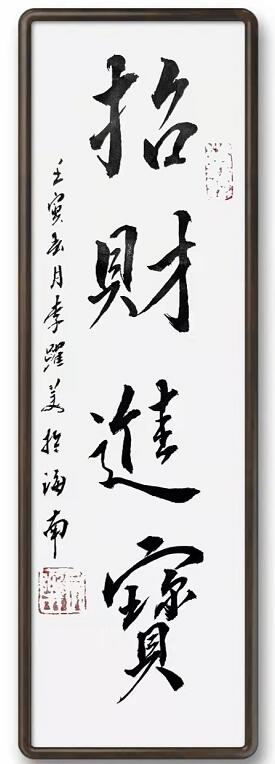 招財進寶
壬寅五月李躍美於海南